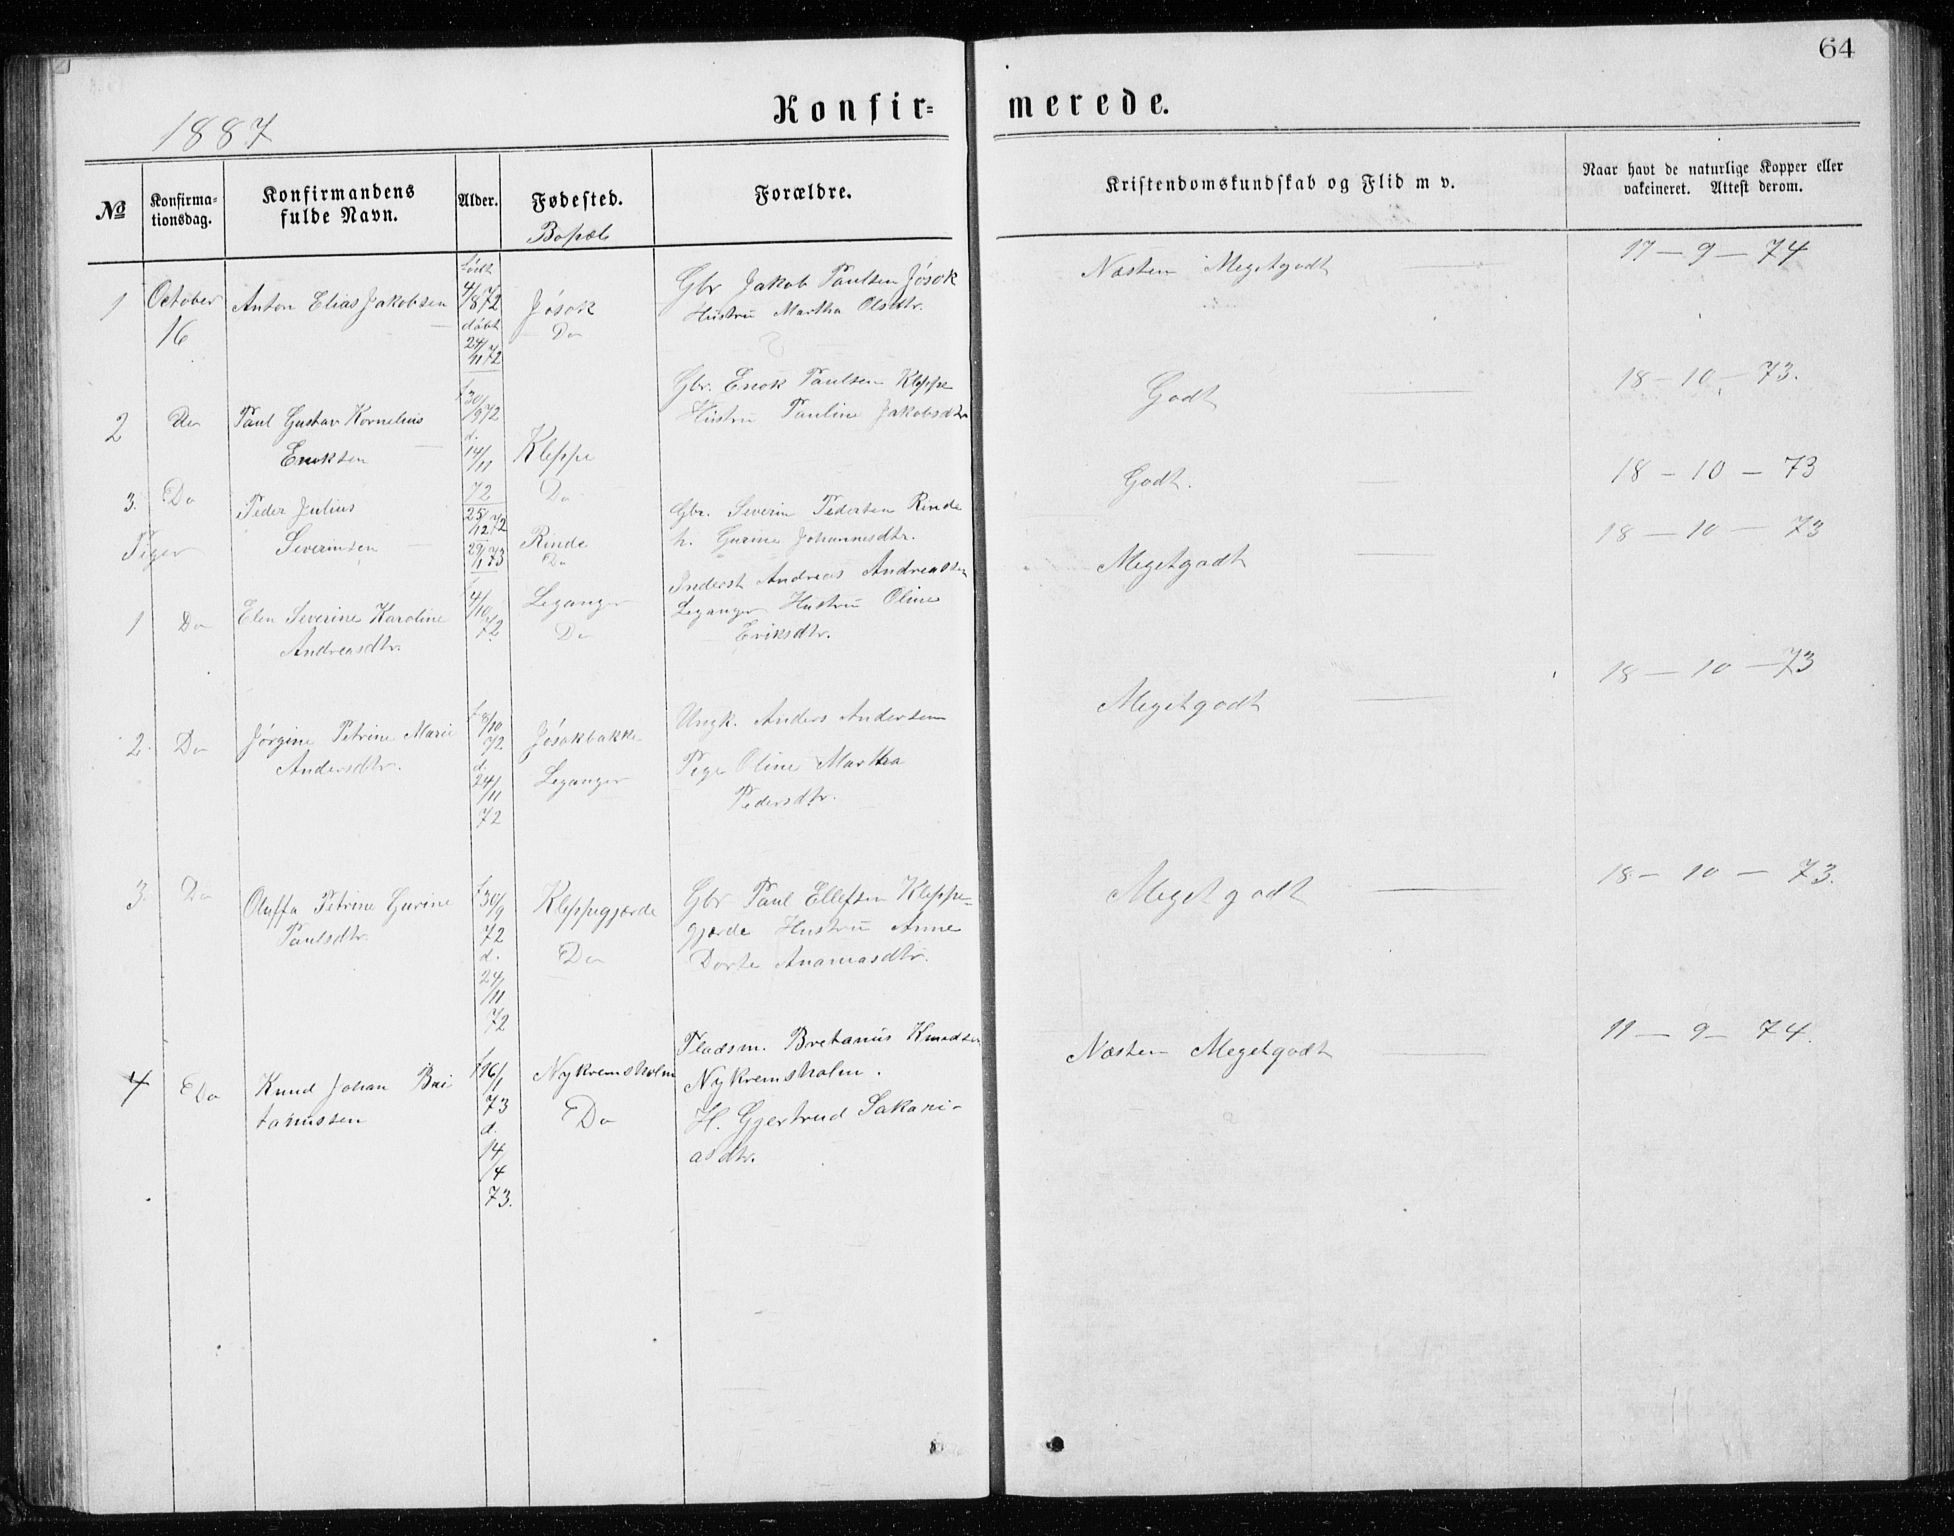 64
Konfir=
merede.
1887
№
Konfirma-
tionsdag.
Konfirmandens
fulde Navn.
Alder.
Fødested.
Bopæl
Forældre.
Kristendomskundskab og Flid m v.
Naar havt de naturlige Kopper eller
vakcineret. Attest derom.
1
October
16
Anton Elias Jakobsen
født
4/8 72
døbt
24/11 72
Jøsok
Do
Gbr Jakob Paulsen Jøsok
Hustru Martha Olsdtr.
Næsten Megetgodt
17 - 9 - 74
2
Do
Paul Gustav Kornelius
Enoksen
f 30/9 72
d.
14/11
72
Kleppe
Do
Gbr. Enok Paulsen Kleppe
Hustru Pauline Jakobsdtr
Godt
18 - 10 - 73.
3.
Do
Peder Julius
Severinsen
25/12 72
29/1 73
Rinde
Do
Gbr. Severin Pedersen Rinde
h. Gurine Johannesdtr.
Godt.
18 - 10 - 73
Piger
1
Do
Elen Severine Karoline
Andreasdtr.
f 4/10
72
Leganger
Do
Inderst Andreas Andreassen
Leganger Hustru Oline
Eriksdtr.
Megetgodt
18 - 10 - 73
2.
Do
Jørgine Petrine Marie
Andersdtr.
f 8/10
72
d.
24/11
72
Jøsokbakke
Leganger
Ungk. Anders Andersen
Pige Oline Martha
Pedersdtr.
Megetgodt
18 - 10 - 73
3.
Do
Oluffa Petrine Gurine
Paulsdtr.
f 30/9
72
d.
24/11
72
Kleppegjærde
Do
Gbr Paul Ellefsen Kleppe-
gjærde Hustru Anne
Dorte Ananiasdtr.
Megetgodt
18 - 10 - 73.
4
Do
Knud Johan Bri
tanussen
f 16/1
73
d.
14/4
73.
Nykremsholm
Do
Pladsm. Bretanus Knudsen
Nykremsholm.
H. Gjertrud Sakari-
asdtr.
Næsten Megetgodt
11 - 9 - 74.